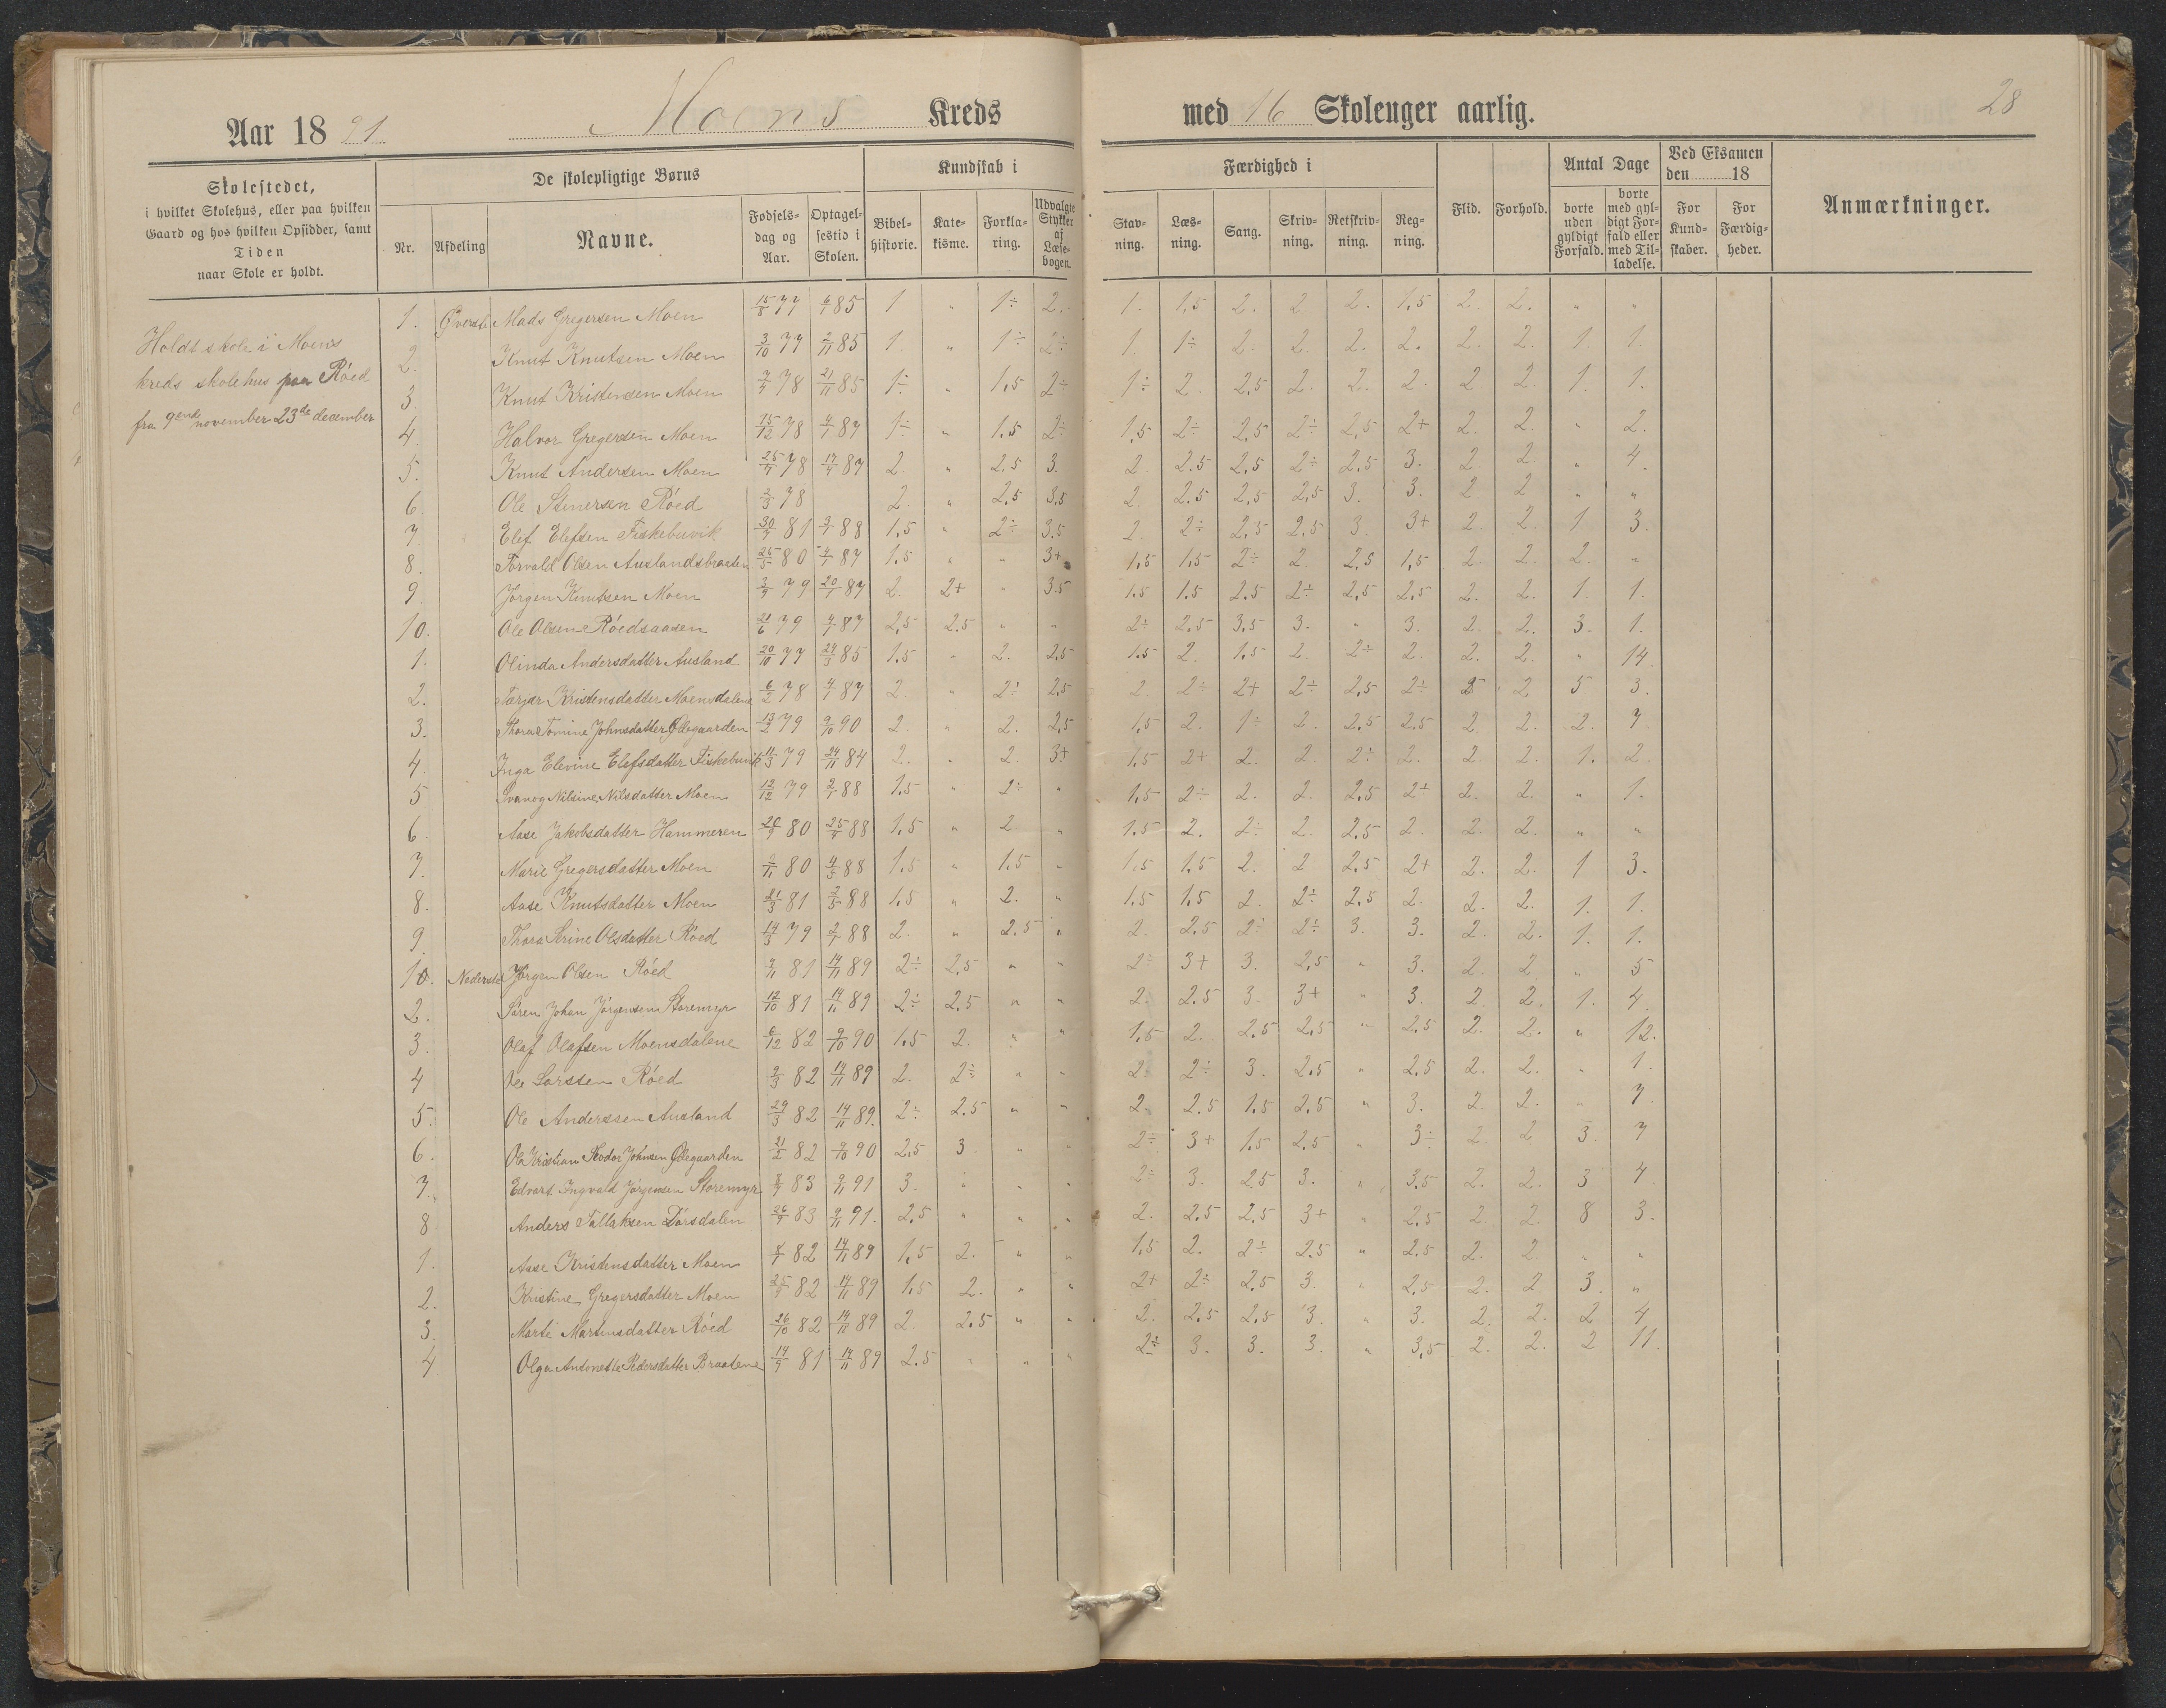 Aar 1891. Moens Kreds med 16 Skoleuger aarlig. 28
Skolestedet, i hvilket Skolehus, eller paa hvilken Gaard og hos hvilken Opsidder, samt Tiden naar Skole er holdt.
De skolepligtige Børns
Nr. Afdeling Navne. Fødselsdag og Aar. Optagelsestid i Skolen.
Kundskab i
Bibelhistorie. Katekisme. Forklaring. Udvalgte Stykker af Læsebogen.
Færdighed i
Stavning. Læsning. Sang. Skrivning. Retskrivning. Regning.
Flid. Forhold.
Antal Dage
borte uden gyldigt Forfald. borte med gyldigt Forfald eller med Tilladelse.
Ved Eksamen den 18
For Kundskaber. For Færdigheder.
Anmærkninger.
Holdt skole i Moens
kreds skolehus paa Röed
fra 9ende november 23de december
1. Øverste Mads Gregersen Moen 15/8 77 6/7 85 1 " 1÷ 2. 1. 1,5 2. 2. 2. 1,5 2. 2. " "
2. Knut Knutsen Moen 3/10 77 2/11 85 1. " 1÷ 2÷ 1. 1÷ 2. 2. 2. 2. 2. 2. 1. 1.
3. Knut Kristensen Moen 7/7 78 21/11 85 1÷ " 1,5 2÷ 1÷ 2. 2,5 2. 2. 2. 2. 2. 1. 1.
4. Halvor Gregersen Moen 15/12 78 4/1 87 1÷ " 1,5 2÷ 1,5 2÷ 2,5 2÷ 2,5 2+ 2. 2. " 2.
5. Knut Andersen Moen 25/7 78 17/1 87 2. " 2.5 3. 2. 2.5 2,5 2÷ 2.5 3. 2. 2 " 4.
6 Ole Stenersen Röed 2/3 78 2. " 2,5 3.5 2. 2.5 2,5 2,5 3. 3. 2. 2 " "
7. Elef Elefsen Fiskebuvik 30/7 81 2/1 88 1,5 " 2÷ 3.5 2. 2÷ 2,5 2,5 3. 3+ 2. 2. 1 3.
8. Torvald Olsen Auslandsbraaten 25/5 80 4/1 87 1.5 " " 3+ 1,5 1,5 2÷ 2. 2,5 1,5 2. 2. 2. "
9. Jörgen Knutsen Moen 3/7 79 20/1 87 2. 2+ " 3.5 1.5 1.5 2.5 2÷ 2,5 2,5 2. 2. 1. 1.
10. Ole Olsen Röedsaasen 21/6 79 4/1 87 2,5 2.5 " " 2÷ 2.5 3,5 3. " 3. 2. 2. 3. 1.
1. Olinda Andersdatter Ausland 20/10 77 24/3 85 1.5 " 2. 2,5 1.5 2. 1.5 2. 2÷ 2. 2. 2. " 14.
2. Tarjær Kristensdatter Moensdalene 6/2 78 4/1 87 2. " 2÷ 2,5 2. 2÷ 2+ 2÷ 2,5 2÷ 2 2 5 3.
3. Thora Tomine Johnsdatter Ölegaarden 13/2 79 9/10 90 2. " 2. 2,5 1,5 2. 1÷ 2. 2.5 2.5 2. 2. 2. 7
4. Inga Elevine Elefsdatter Fiskebuvik 11/3 79 24/11 84 2. " 2. 3+ 1.5 2+ 2. 2. 2÷ 2. 2. 2. 1. 2.
5 Svanog Nilsine Nilsdatter Moen 12/12 79 2/1 88 1.5 " 2÷ " 1,5 2÷ 2. 2. 2.5 2÷ 2. 2. " 1.
6. Aase Jakobsdatter Hammeren 20/9 80 25/4 88 1,5 " 2 " 1.5 2. 2÷ 2. 2.5 2. 2. 2. " "
7. Marie Gregersdatter Moen 2/11 80 4/5 88 1,5 " 1,5 " 1,5 1.5 2. 2 2.5 2+ 2. 2. 1 3.
8. Aase Knutsdatter Moen 21/3 81 2/5 88 1.5 " 2. " 1.5 1.5 2. 2÷ 2.5 2. 2. 2. 1. 1.
9. Thora Serine Olsdatter Röed 14/3 79 2/1 88 2. " 2.5 " 2. 2.5 2÷ 2÷ 3. 3. 2. 2. 1. 1.
10. Nederste Jörgen Olsen Röed 2/11 81 14/11 89 2÷ 2,5 " " 2÷ 3+ 3. 2,5 " 3. 2. 2. " 5
2. Sören Johan Jörgensen Storemyr 12/10 81 14/11 89 2÷ 2.5 " " 2. 2.5 3. 3+ " 3. 2. 2. 1. 4.
3. Olaf Olafsen Moensdalene 6/12 82 9/10 90 1.5 2. " " 1,5 2. 2.5 2,5 " 2,5 2. 2. " 12.
4 Ole Larssen Röed 2/3 82 14/11 89 2. 2÷ " " 2. 2÷ 3. 2,5 " 2,5 2. 2. " 1.
5. Ole Anderssen Ausland 29/3 82 14/11 89. 2÷ 2.5 " " 2. 2.5 1.5 2.5 " 3. 2. 2. " 7.
6. Ole Kristian Teodor Johnsen Ölegaarden 21/2 82 9/10 90 2,5 3 " " 2÷ 3+ 1.5 2.5 " 3÷ 2. 2 3. 7
7. Edvart Ingvald Jörgensen Storemyr 8/7 83 9/11 91 3. " " " 2÷ 3. 2.5 3. " 3.5 2. 2. 3 4.
8 Anders Tallaksen Dörsdalen 26/7 83 9/11 91. 2,5 " " " 2. 2.5 2,5 3+ " 2.5 2. 2. 8 3.
1. Aase Kristensdatter Moen 8/7 82 14/11 89 1,5 2. " " 1,5 2. 2÷ 2.5 " 2.5 2. 2. " "
2. Kristine Gregersdatter Moen 25/9 82 14/11 89 1,5 2. " " 2+ 2÷ 2.5 3. " 2,5 2. 2. 3. "
3. Marte Martinsdatter Röed 26/10 82 14/11 89 2. 2.5 " " 2. 2.5 2,5 3. " 3. 2. 2. 2 4
4 Olga Antonette Pedersdatter Braatene 14/9 81 14/11 89 2.5 " " " 2÷ 3. 3. 3. " 3,5 2. 2. 2 11.